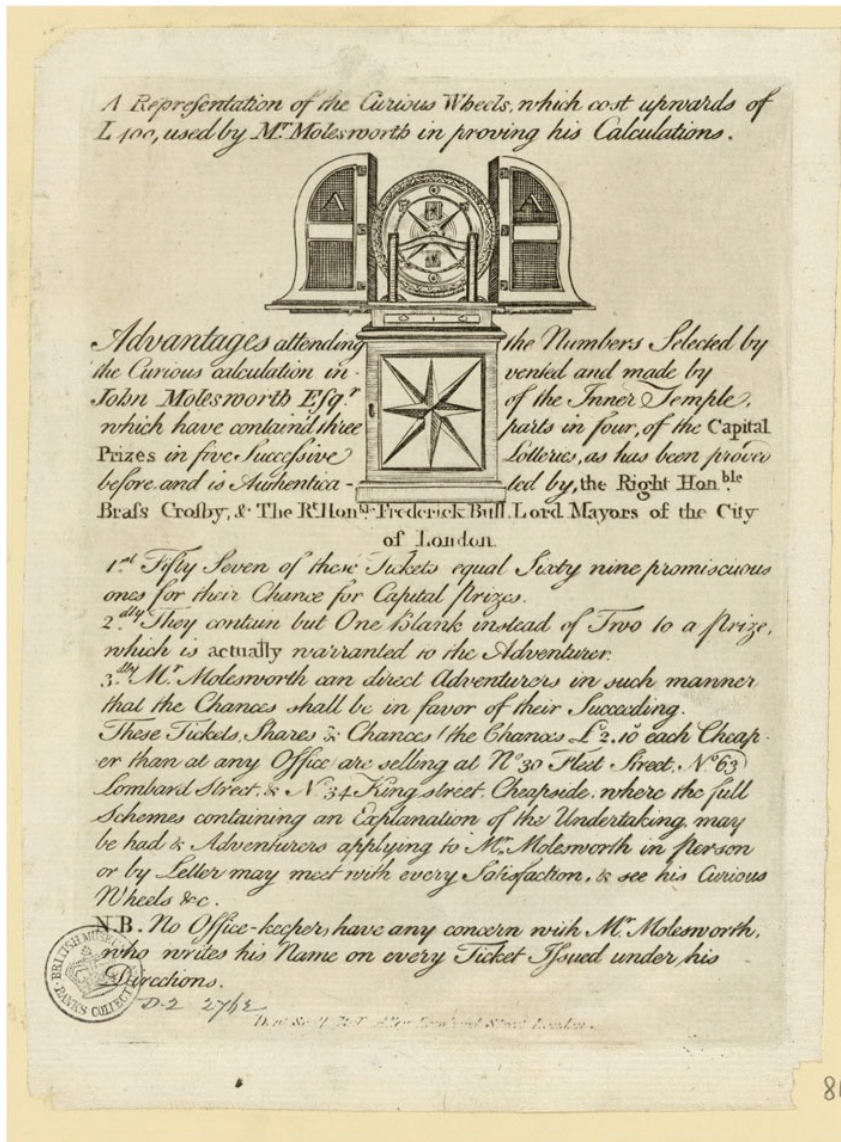 A Representation of the Curious Wheels, which cost upwards of
L 400, used by Mr. Molesworth in proving his Calculations.
A A
Advantages attending the Numbers Selected by
the Curious calculation in- vented and made by
John Molesworth Esqr. of the Inner Temple,
which have contain'd three parts in four, of the Capital
Prizes in five Succeſsive Lotteries, as has been proved
before and is Authentica- ted by, the Right Honble.
Braſs Crosby, & The Rt. Hon. Frederick Bull, Lord Mayors of the City
of London.
1st Fifty Seven of these Tickets equal Sixty nine promiscuous
ones for their Chance for Capital Prizes.
2dly They contain but One Blank instead of Two to a Prize,
which is actually warranted to the Adventurer.
3dly Mr. Molesworth can direct Adventurers in such manner
that the Chances shall be in favor of their Succeeding.
These Tickets, Shares & Chances (the Chances £2.10 each Cheap-
er than at any Office) are selling at No. 30 Fleet Street, No. 63
Lombard Street, & No. 34 King street, Cheapside, where the full
Schemes containing an Explanation of the Undertaking, may
be had & Adventurers applying to Mr. Molesworth in Person
or by Letter may meet with every Satisfaction, & see his Curious
Wheels &c.
N.B. No Office-keepers have any concern with Mr. Molesworth,
who writes his Name on every Ticket Iſsued under his
Directions.
BRITISH MUSEUM BANKS COLLECT
D.2
London.